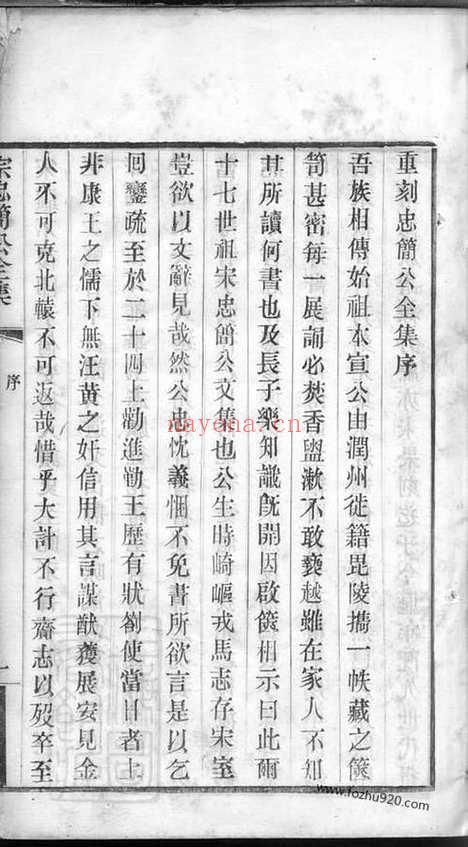 重刻忠簡公全集序
吾族相傳始祖本宣公由潤州徙籍毘陵攜一帙藏之篋
笥甚密每一展誦必焚香盥漱不敢褻越雖在家人不知
其所讀何書也及長子樂知識旣開因啟篋相示曰此爾
十七世祖宋忠簡公文集也公生時崎嶇戎馬志存宋室
豈欲以文辭見哉然公忠忱義悃不免書所欲言是以乞
囘鑾疏至於二十四上勸進勤王歷有狀劄使當日者上
非康王之懦下無汪黃之奸信用其言謀猷獲展安見金
人不可克北轅不可返哉惜乎大計不行齎志以歿卒至
宗忠簡公全集
序
一
nayena.com
www.fozhu920.com